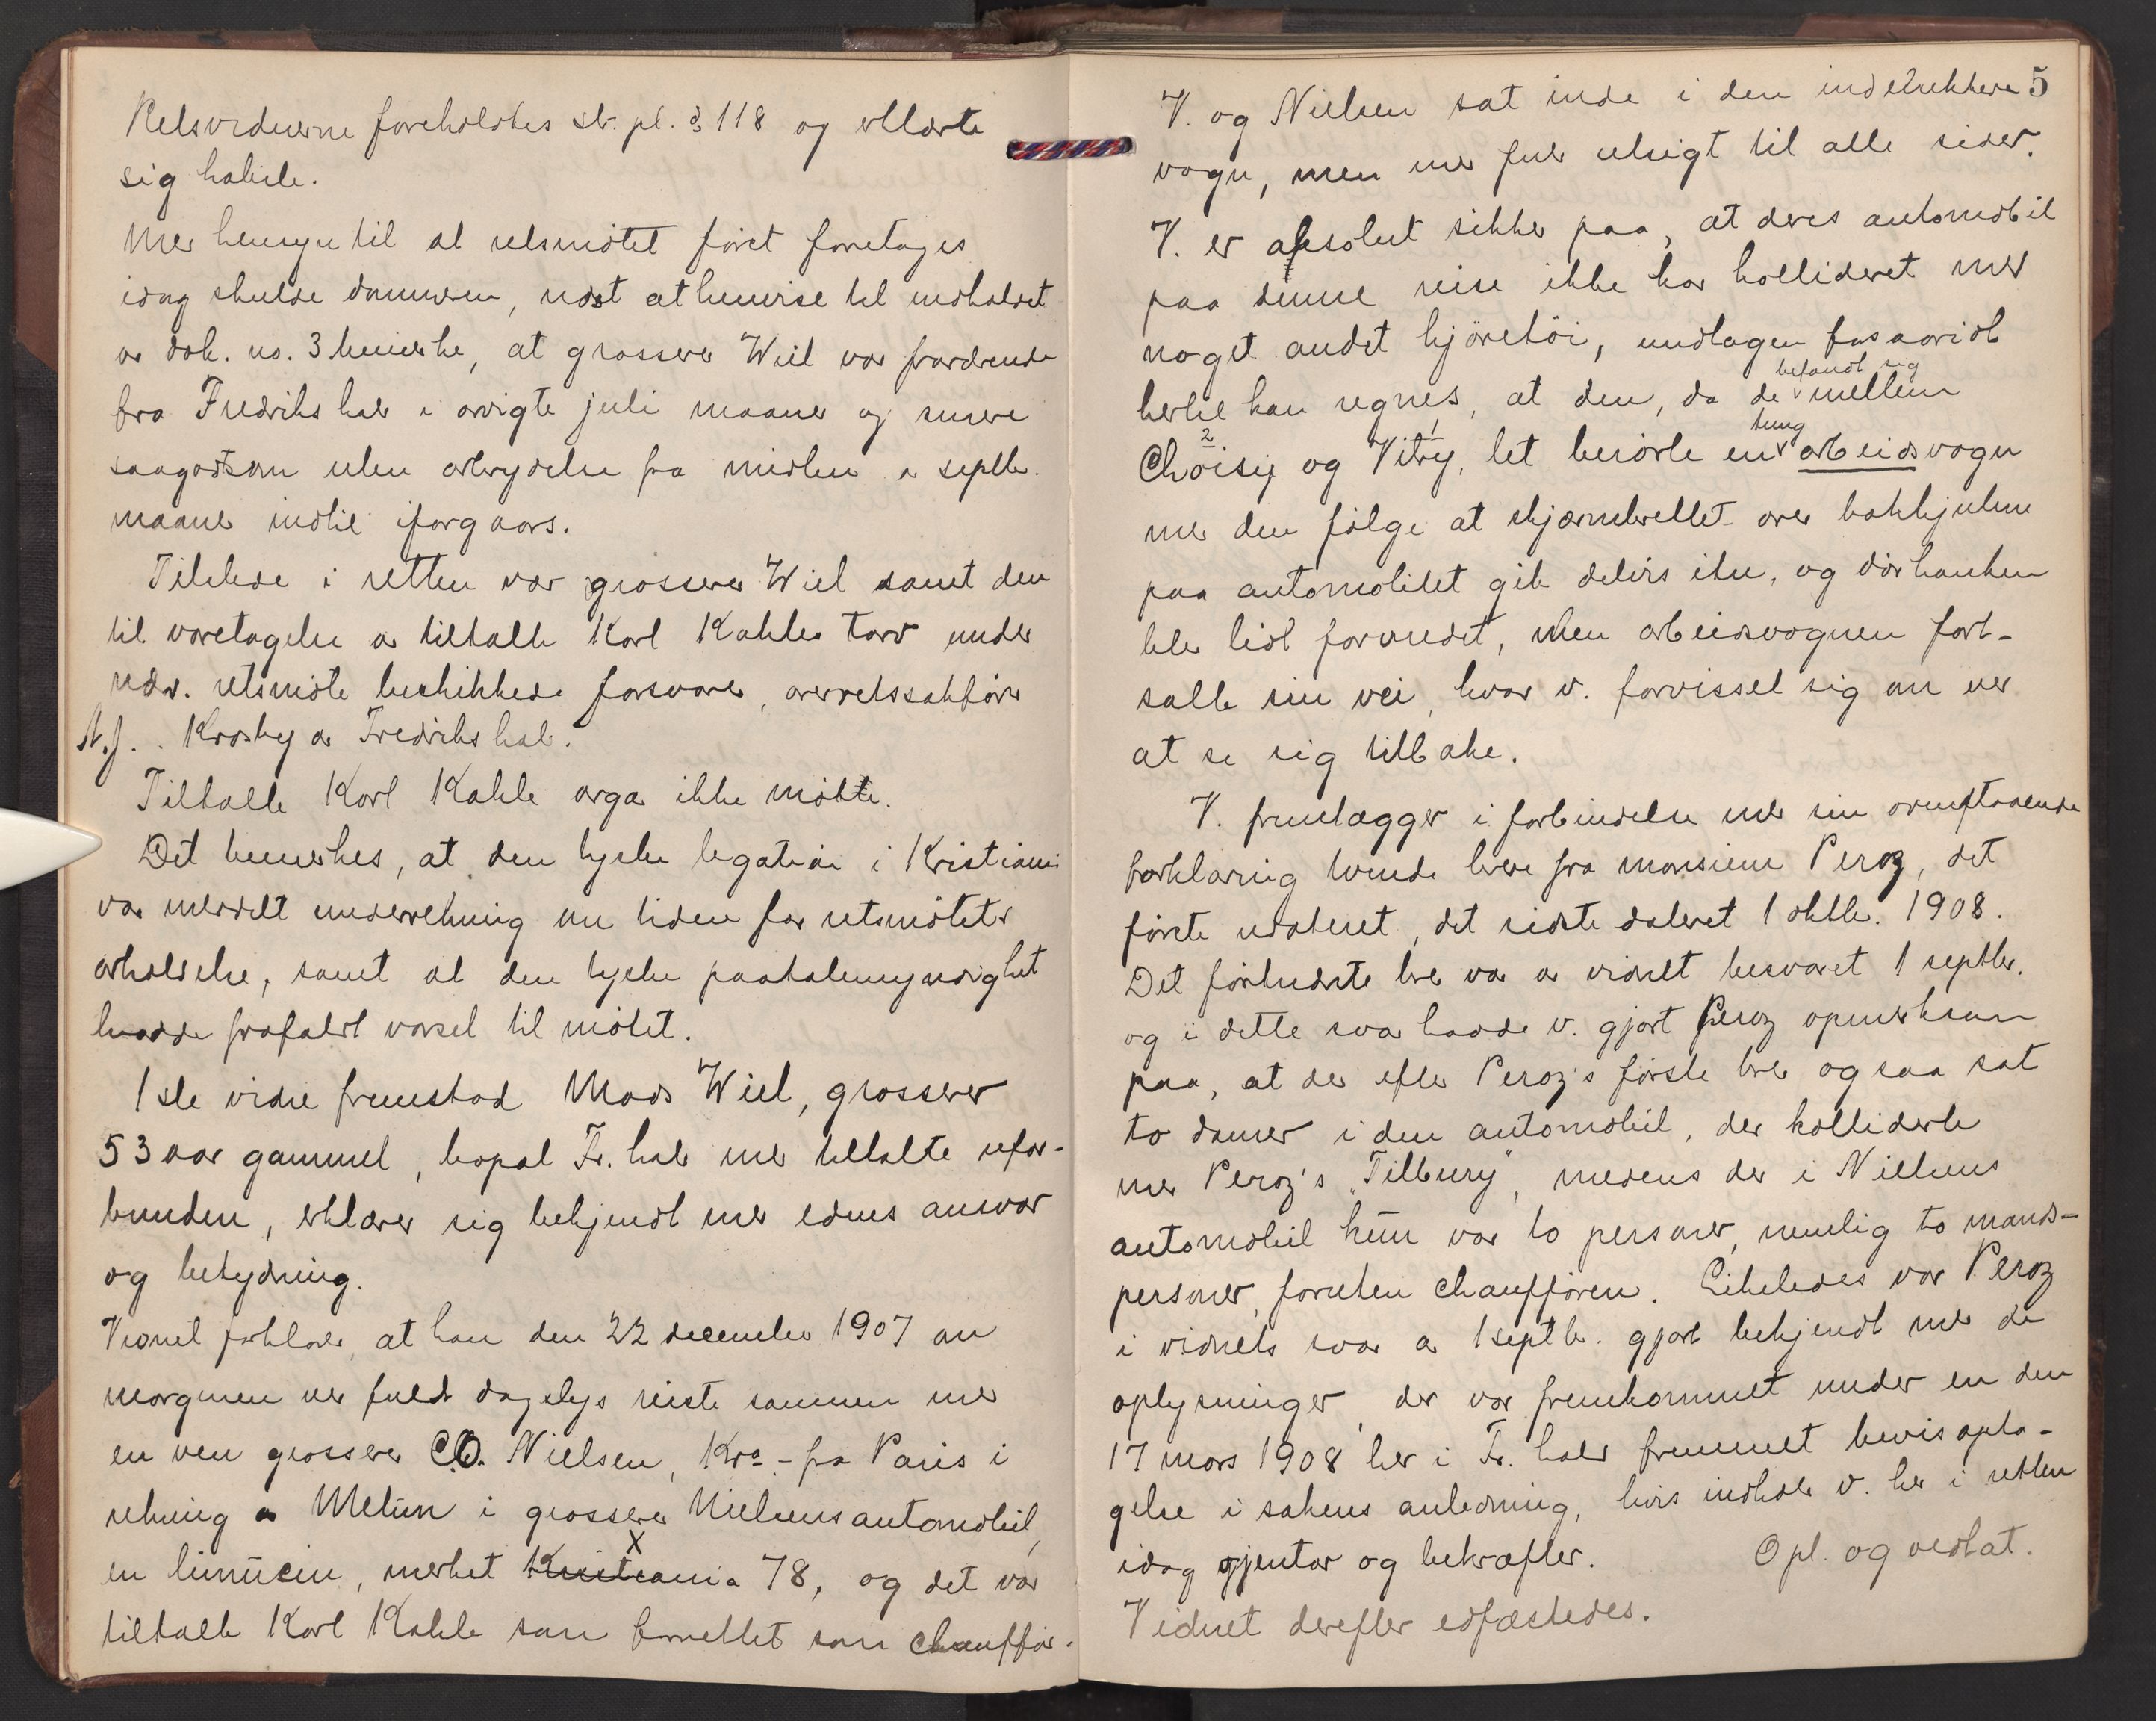 Retsvidnerne foreholdtes str. pl. § 118 og erklærte
sig habile.
Med hensyn til at retsmötet först foretages
idag skulde dommeren, næst at henvise til indholdet
av dok. no. 3 bemerke, at grosserer Wiel var fraværende
fra Fredrikshald i avvigte juli maaned og senere
saagodtsom uten avbrydelse fra midten av septbr.
maaned indtil iforgaars.
Tilstede i retten var grosserer Wiel samt den
til varetagelse av tiltalte Karl Kahles tarv under
nærv. retsmöte beskikkede forsvarer, overretssakförer
N. J. Krosby av Fredrikshald.
Tiltalte Karl Kahle avga ikke mötte.
Det bemerkes, at den tyske legation i Kristiania
var meddelt underretning om tiden for retsmötets
avholdelse, samt at den tyske paatalemyndighet
hadde frafaldt varsel til mötet.
1ste vidne fremstod Mads Wiel, grosserer
53 aar gammel, bopæl Fr.hald med tiltalte ufor-
bunden, erklærer sig bekjendt med edens ansvar
og betydning.
Vidnet forklarer, at han den 22 december 1907 om
morgenen ved fuldt dagslys reiste sammen med
en ven grosserer C.O. Nielsen, Kra. - fra Paris i
retning av Melun i grosserer Nielsens automobil,
X
en limusin, merket Kristiania 78, og det var
tiltalte Karl Kahle som fungerte som chaufför.
5
V. og Nielsen sat inde i den indelukkede
vogn, men med full utsigt til alle sider.
V. er absolut sikker paa, at deres automobil
paa denne reise ikke har kollideret med
noget andet kjöretöi, undtagen forsaavidt
befandt sig
hertil kan regnes, at den, da de mellem
2 1 tung
Choisy og Vitry, let berörte en arbeidsvogn
med den fölge at skjærmbrettet over bakhjulene
paa automobilet gik delvis itu, og dörhanken
blev lidt forvredet, men arbeidsvognen fort-
satte sin vei, hvor v. forvisset sig om ved
at se sig tilbake.
V. fremlægger i forbindelse med sin ovenstaaende
forklaring tvende breve fra monsieur Peroz, det
förste udateret, det sidste dateret 1 oktbr. 1908.
Det förstnævnte brev var av vidnet besvaret 1 septbr.
og i dette svar hadde v. gjort Peroz opmerksom
paa, at der efter Peroz's förste brev ogsaa sat
to damer i den automobil, der kolliderte
med Peroz's "Tilbury", medens der i Nielsens
automobil kun var to personer, nemlig to mands-
personer, foruten chauffören. Likeledes var Peroz
i vidnets svar av 1 septbr. gjort bekjendt med de
oplysninger, der var fremkommet under en den
17 mars 1908 her i Fr.hald fremmet bevisopta-
gelse i sakens anledning, hvis indhold v. her i retten
idag gjentar og bekræfter. Opl. og vedtat.
Vidnet derefter edfæstedes.